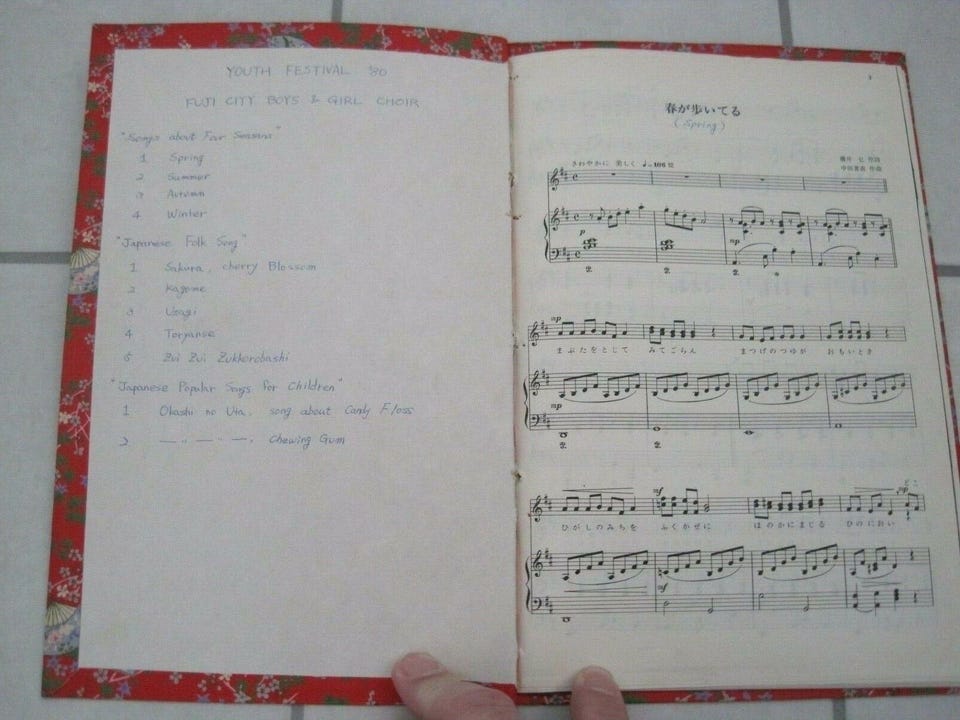 YOUTH FESTIVAL '80
FUJI CITY BOYS & GIRL CHOIR
"Songs about Four Seasons"
1 Spring
2 Summer
3 Autumn
4 Winter
"Japanese Folk Song"
1 Sakura, cherry Blossom
2 Kagome
3 Usagi
4 Toryanse
5 Zui Zui Zukkorobashi
"Japanese Popular Songs for Children"
1 Okashi no Uta, song about Candy Floss
2 — 〃 — 〃 —, Chewing Gum
3
春が歩いてる
(Spring)
さわやかに 美しく ♩=106 位
作詞
中田喜直 作曲
p
mp
mp
まぶたをとじて みてごらん まつげのつゆが おもいとき
mp
mf
mp
どこ
ひがしのみちを ふくかぜに ほのかにまじる ひのにおい
mf